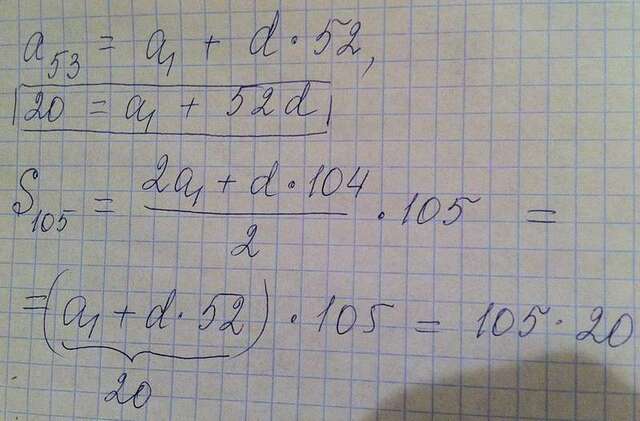 a₅₃ = a₁ + d · 52,
20 = a₁ + 52d
S₁₀₅ = (2a₁ + d · 104)/2 · 105 =
= (a₁ + d · 52) · 105 = 105 · 20
20